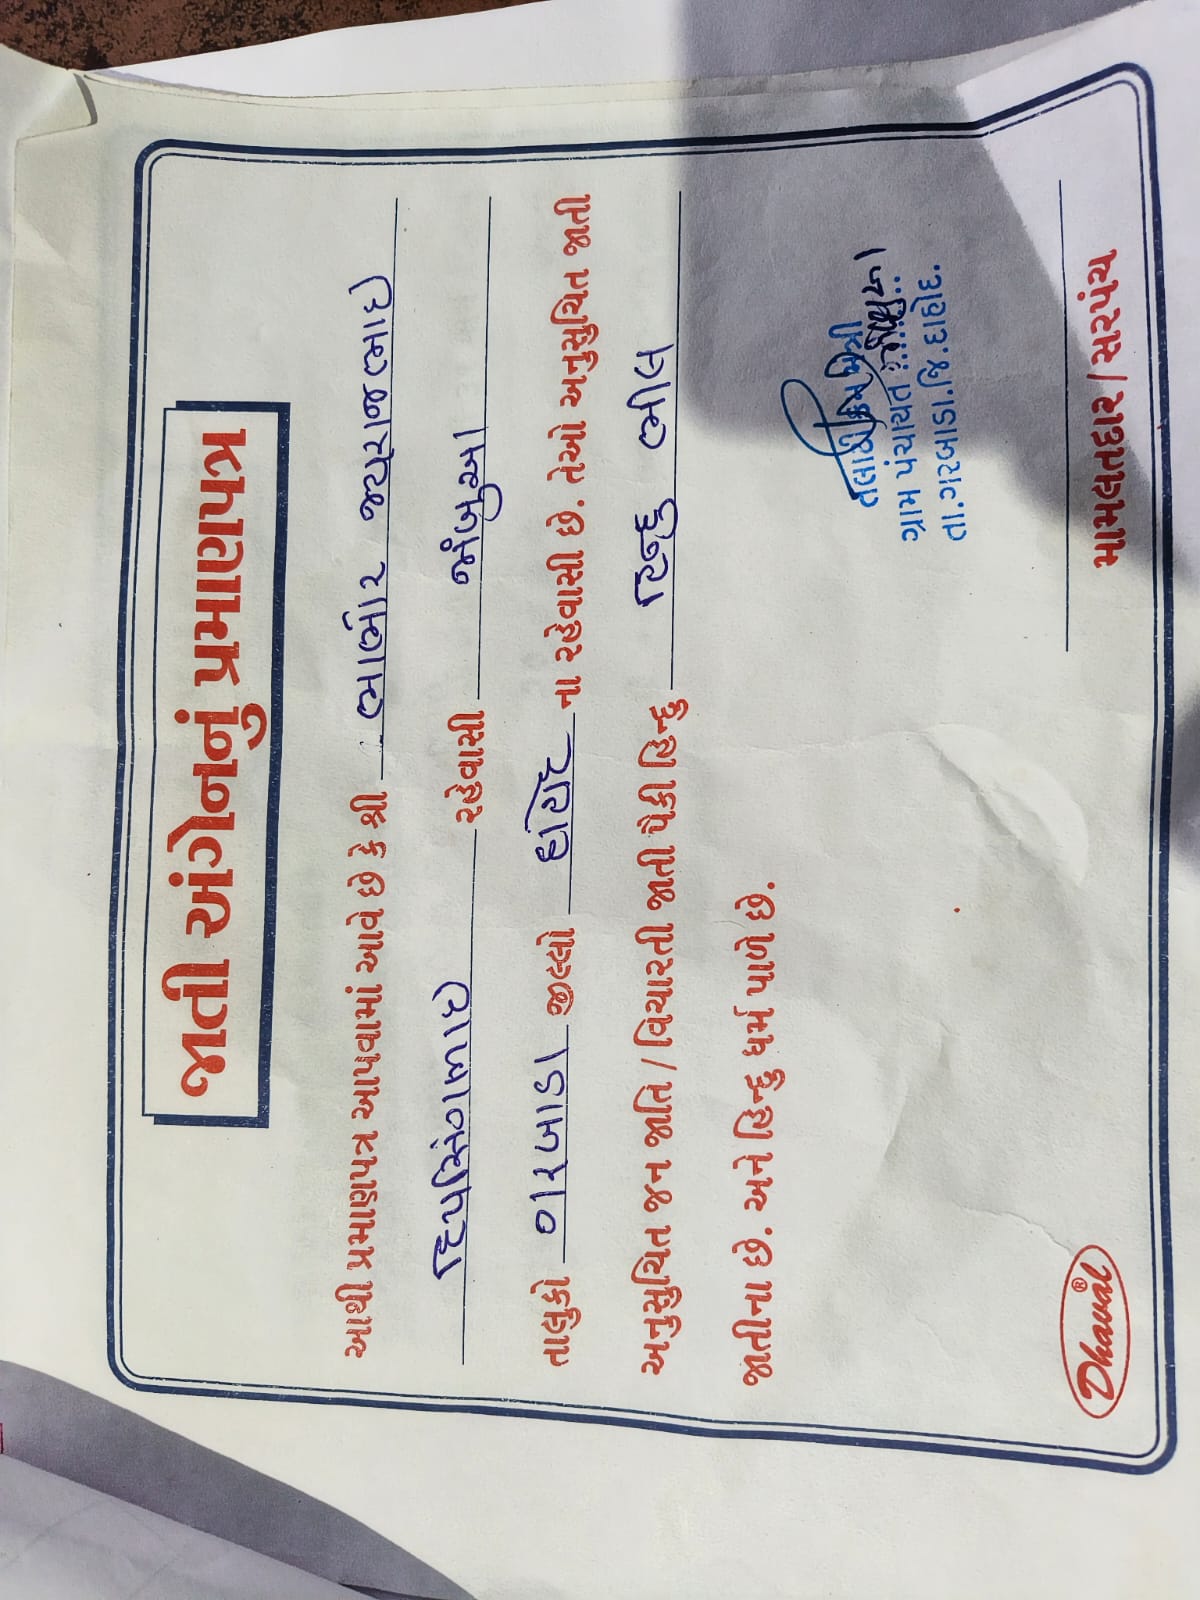 જાતી અંગેનું પ્રમાણપત્ર
આથી પ્રમાણપત્ર આપવામાં આવે છે કે શ્રી ભાભોર જયરાજભાઇ
દિપસિંગભાઇ રહેવાસી જાંબુઆ
તાલુકો ગરબાડા જીલ્લો દાહોદ ના રહેવાસી છે. તેઓ અનુસુચિત જાતી
અનુસુચિત જન જાતિ / વિચારતી જાતી પૈકી હિન્દુ હિન્દુ ભીલ
જાતીના છે. અને હિન્દુ ધર્મ પાળે છે.
તલાટી કમ મંત્રી
ગ્રામ પંચાયત
તા.ગરબાડા.જિ.દાહોદ.
મામલતદાર / સરપંચ
Dhaval ®